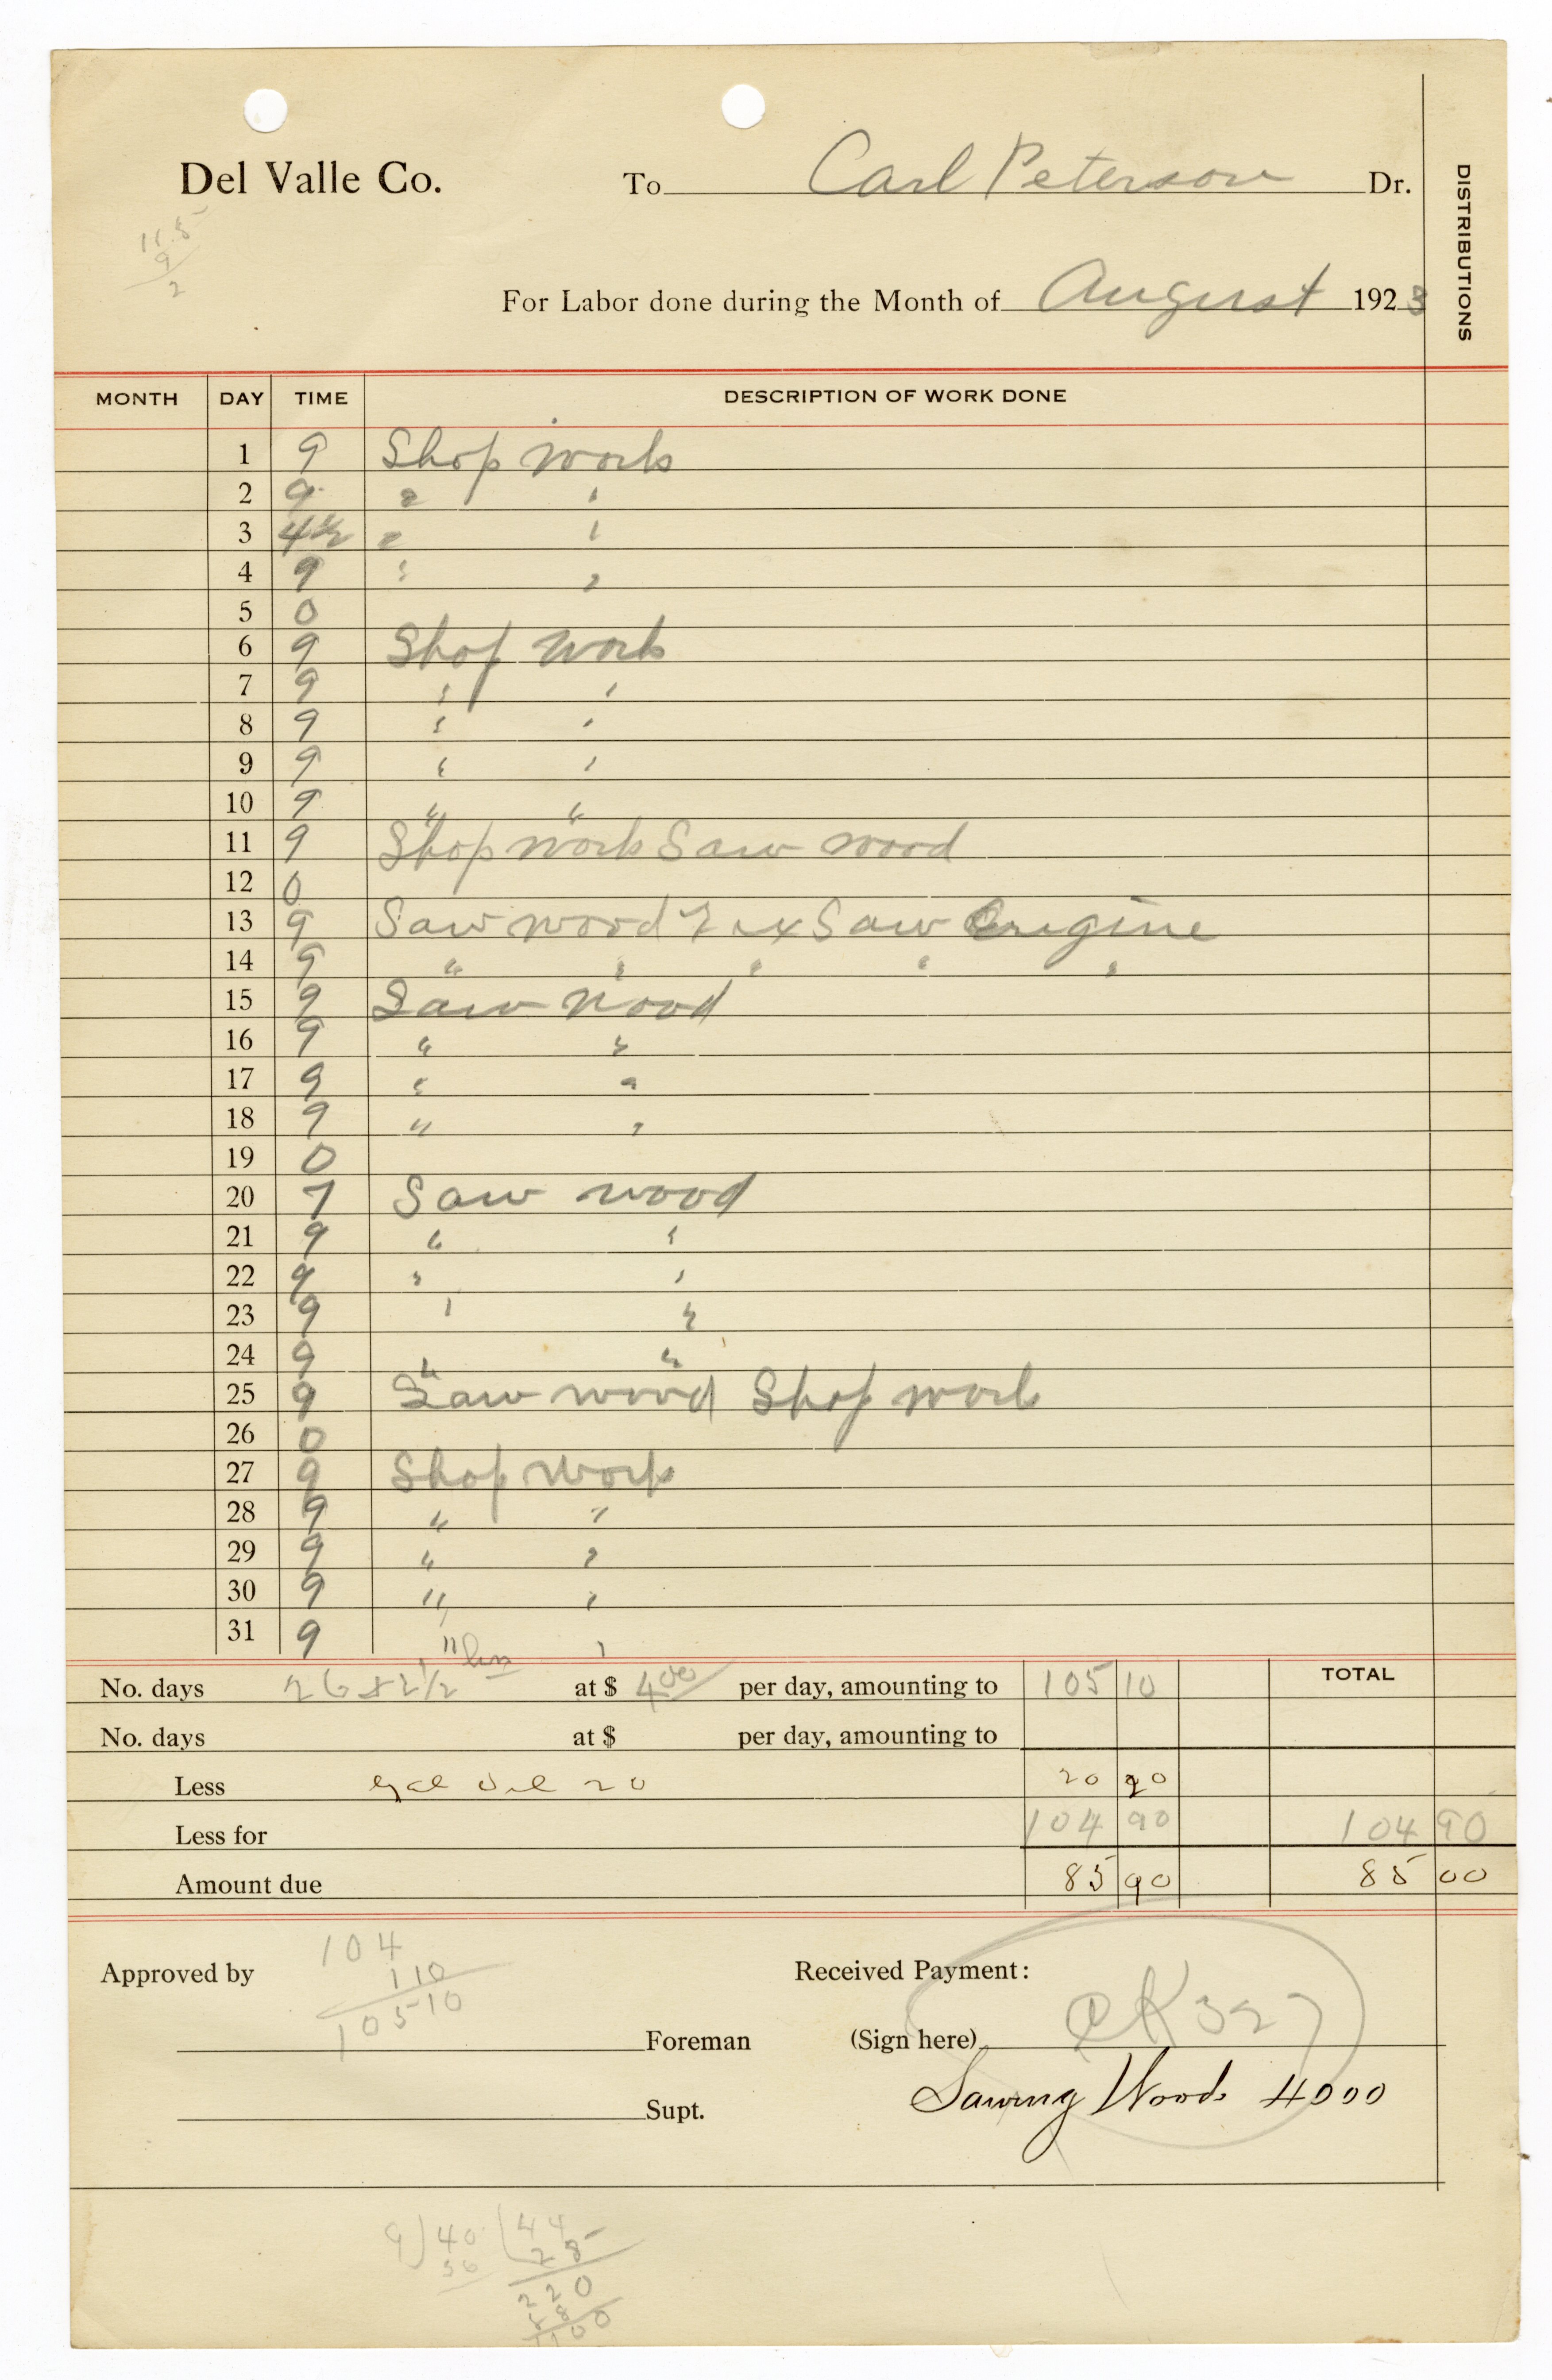 Del Valle Co. To Carl Peterson Dr.
DISTRIBUTIONS
11.5
9
2
For Labor done during the Month of August 1923
MONTH DAY TIME DESCRIPTION OF WORK DONE
1 9 Shop Work
2 9 " "
3 4 1/2 " "
4 9 " "
5 0
6 9 Shop Work
7 9 " "
8 9 " "
9 9 " "
10 9 " "
11 9 Shop Work Saw Wood
12 0
13 9 Saw Wood Fix Saw Engine
14 9 " " " " "
15 9 Saw Wood
16 9 " "
17 9 " "
18 9 " "
19 0
20 7 Saw wood
21 9 " "
22 9 " "
23 9 " "
24 9 " "
25 9 Saw wood Shop work
26 0
27 9 Shop Work
28 9 " "
29 9 " "
30 9 " "
31 9 " "
No. days 26 + 2 1/2 hrs at $ 4.00 per day, amounting to 105 10 TOTAL
No. days at $ per day, amounting to
Less 20 20 20
Less for 104 90 104 90
Amount due 85 90 85 00
Approved by 104
1 10
105 10
Received Payment:
Foreman (Sign here) CK 327
Supt. Sawing Wood 4000
9 ) 40 ( 44
36 25
220
88
1100